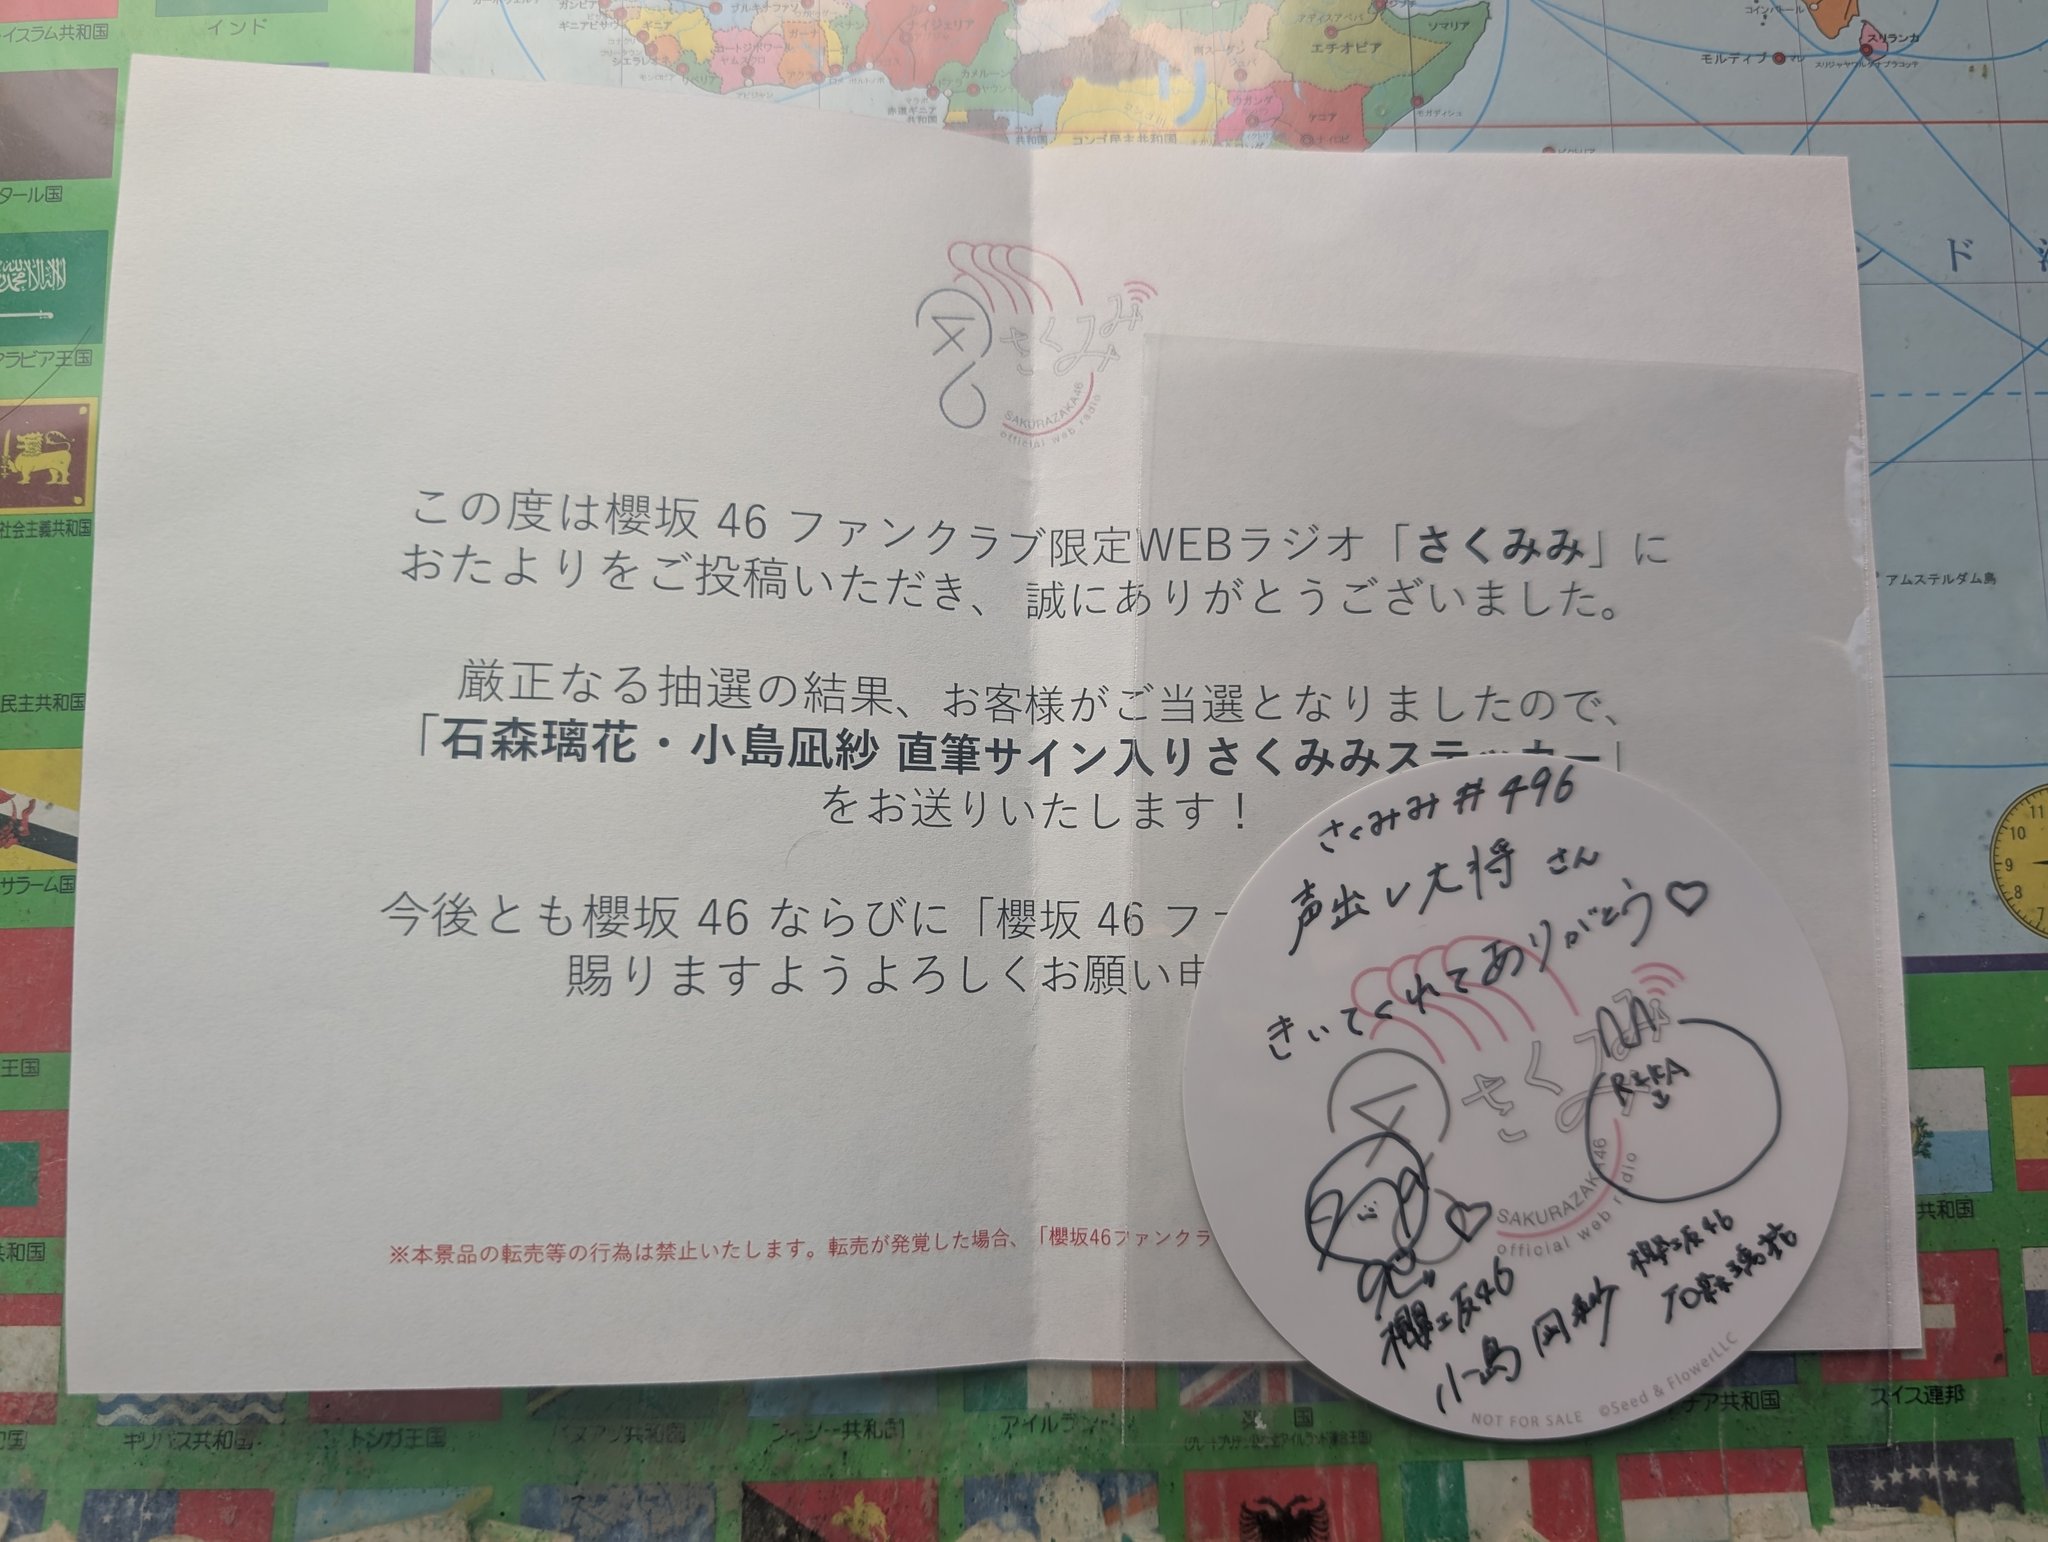 さくみみ
SAKURAZAKA46
official web radio
この度は櫻坂 46 ファンクラブ限定WEBラジオ「さくみみ」に
おたよりをご投稿いただき、 誠にありがとうございました。
厳正なる抽選の結果、お客様がご当選となりましたので、
「石森璃花・小島凪紗 直筆サイン入りさくみみステッカー」
をお送りいたします！
今後とも櫻坂 46 ならびに「櫻坂 46 ファ
賜りますようよろしくお願い申
※本景品の転売等の行為は禁止いたします。転売が発覚した場合、「櫻坂46ファンクラ
さくみみ#496
声出し大将 さん
きいてくれてありがとう♡
さくみみ
RIKA
SAKURAZAKA46
official web radio
櫻坂46
小島凪紗
櫻坂46
石森璃花
NOT FOR SALE ©Seed & FlowerLLC
インド
タール国
ラビア王国
社会主義共和国
民主共和国
サラーム国
王国
共和国
キリバス共和国
トンガ王国
アイルランド
スイス連邦
共和国
ギニア
リベリア
ガーナ
ナイジェリア
カメルーン
赤道ギニア
共和国
コンゴ民主共和国
ウガンダ
ケニア
ナイロビ
エチオピア
アディスアベバ
ソマリア
モガディシュ
モルディブ
マレ
スリランカ
コインバトール
アムステルダム島
11
10
9
8
7